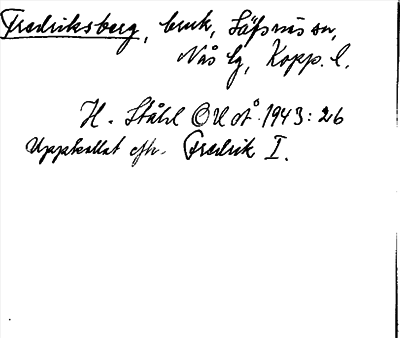 Fredriksberg, bruk, Säfsnäs sn,
Nås lg, Kopp. l.
H. Ståhl OUÅ 1943: 26
Uppkallat eftr. Fredrik I.